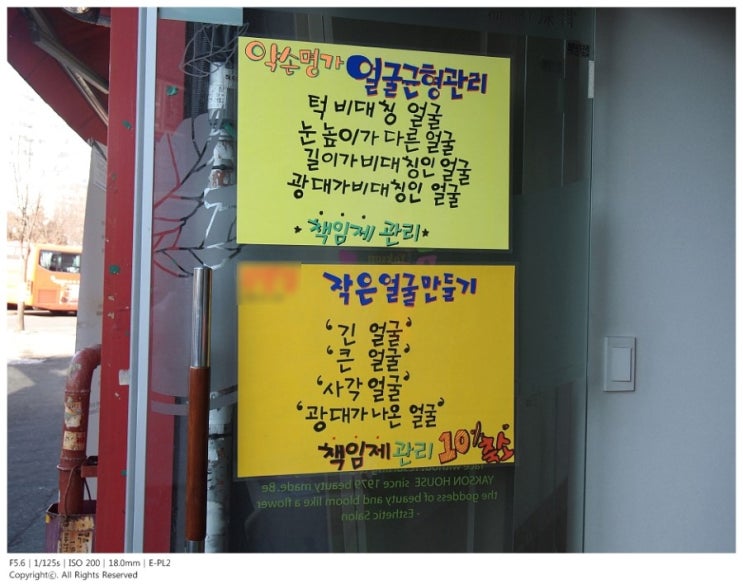 약손명가 얼굴균형관리
턱 비대칭 얼굴
눈높이가 다른 얼굴
길이가 비대칭인 얼굴
광대가 비대칭인 얼굴
*책임제 관리*
작은얼굴만들기
'긴 얼굴'
'큰 얼굴'
'사각 얼굴'
'광대가 나온 얼굴'
책임제 관리 10% 축소
YAKSON HOUSE since 1979 beauty made. Be
the goddess of beauty and bloom like a flower
- Esthetic Salon
F5.6 | 1/125s | ISO 200 | 18.0mm | E-PL2
Copyrightⓒ. All Rights Reserved